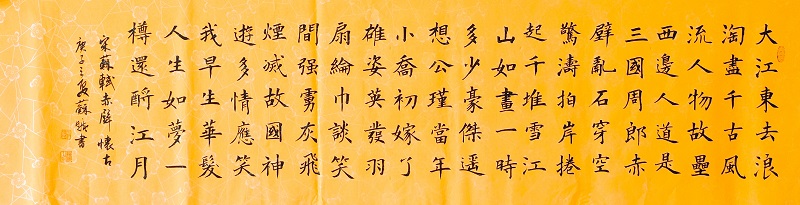 大江東去浪
淘盡千古風
流人物故壘
西邊人道是
三國周郎赤
壁亂石穿空
驚濤拍岸捲
起千堆雪江
山如畫一時
多少豪傑遥
想公瑾當年
小喬初嫁了
雄姿英發羽
扇綸巾談笑
間强虜灰飛
煙滅故國神
遊多情應笑
我早生華髮
人生如夢一
樽還酹江月
宋蘇軾赤壁懷古
庚子之夏蘇書